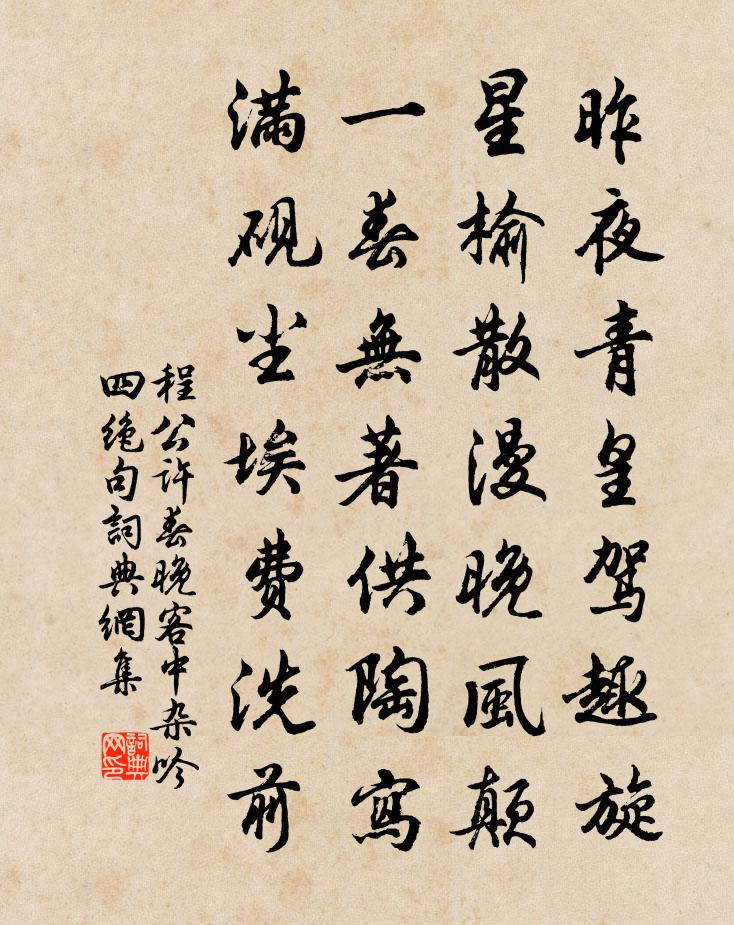 昨夜青皇駕趣旋
星榆散漫晚風顛
一春無著供陶寫
滿硯尘埃費洗前
程公许春晚客中杂吟
四绝句詞典網集
詞典网印